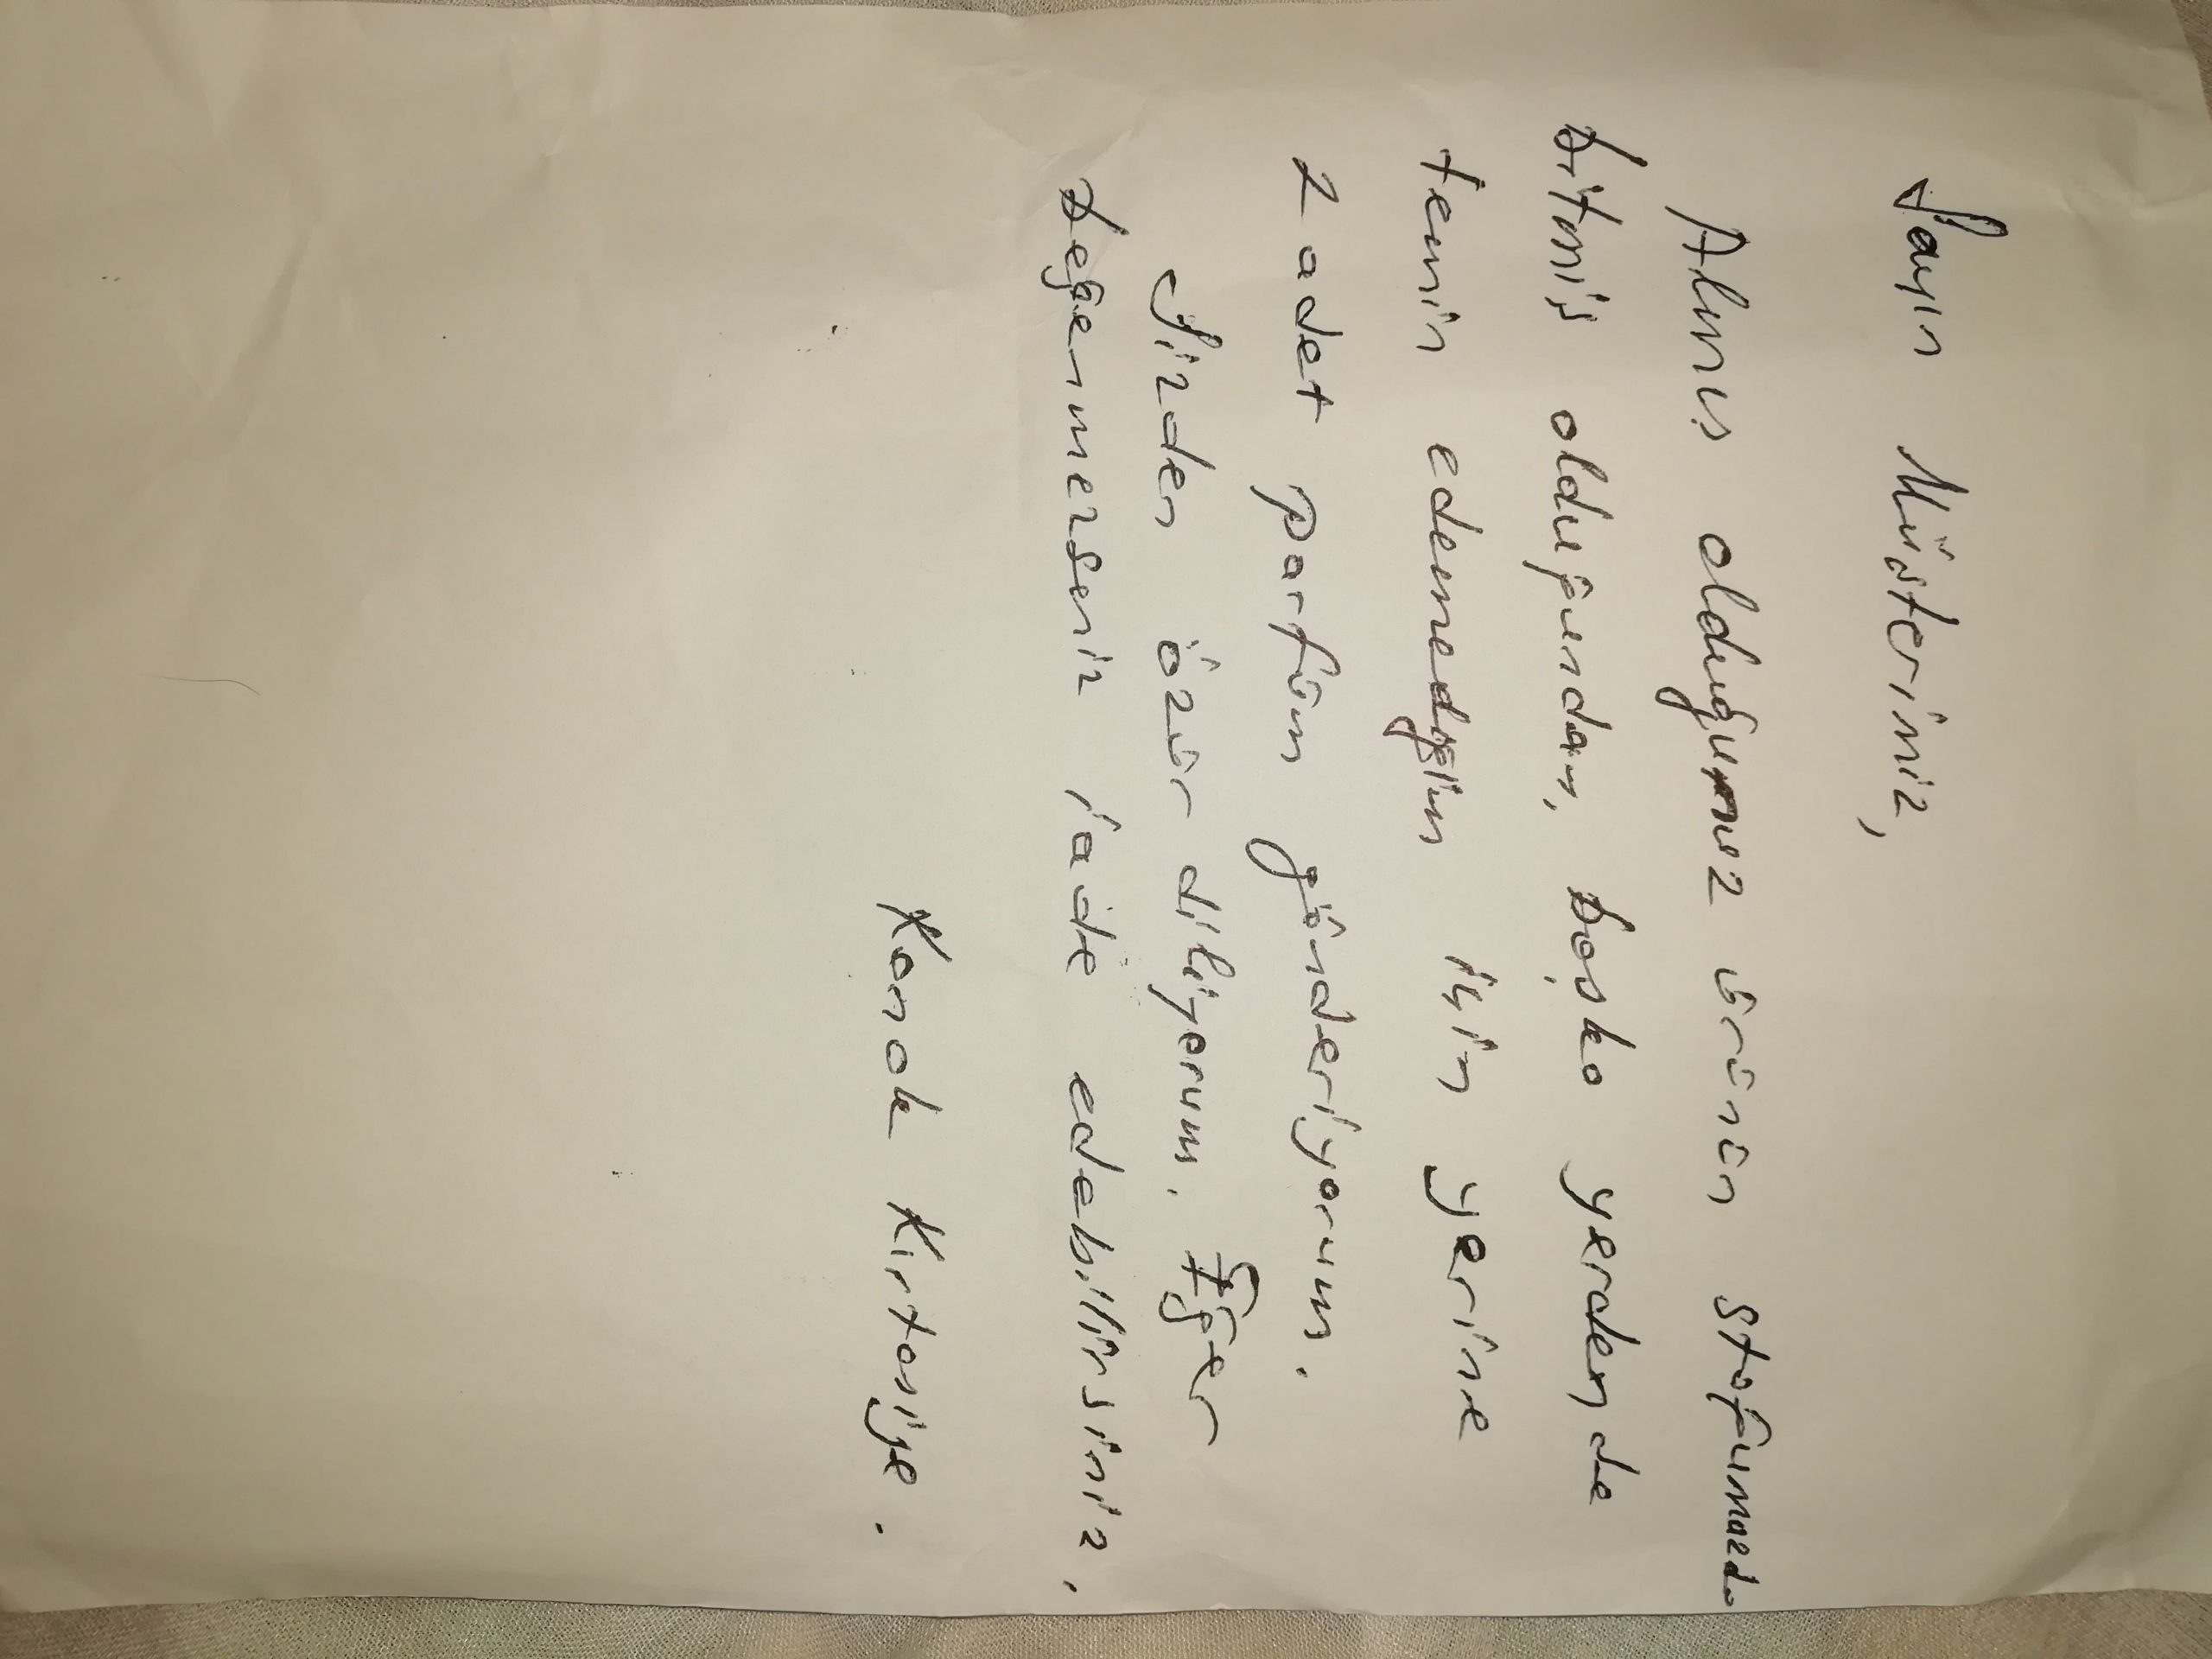 Sayın Müşterimiz,
Almış olduğunuz ürünün stoğumuzda
bitmiş olduğundan, başka yerdende
temin edemediğim için yerine
2 adet parfüm gönderiyorum.
Sizden özür diliyorum. Eğer
beğenmezseniz iade edebilirsiniz,
Konak Kırtasiye.